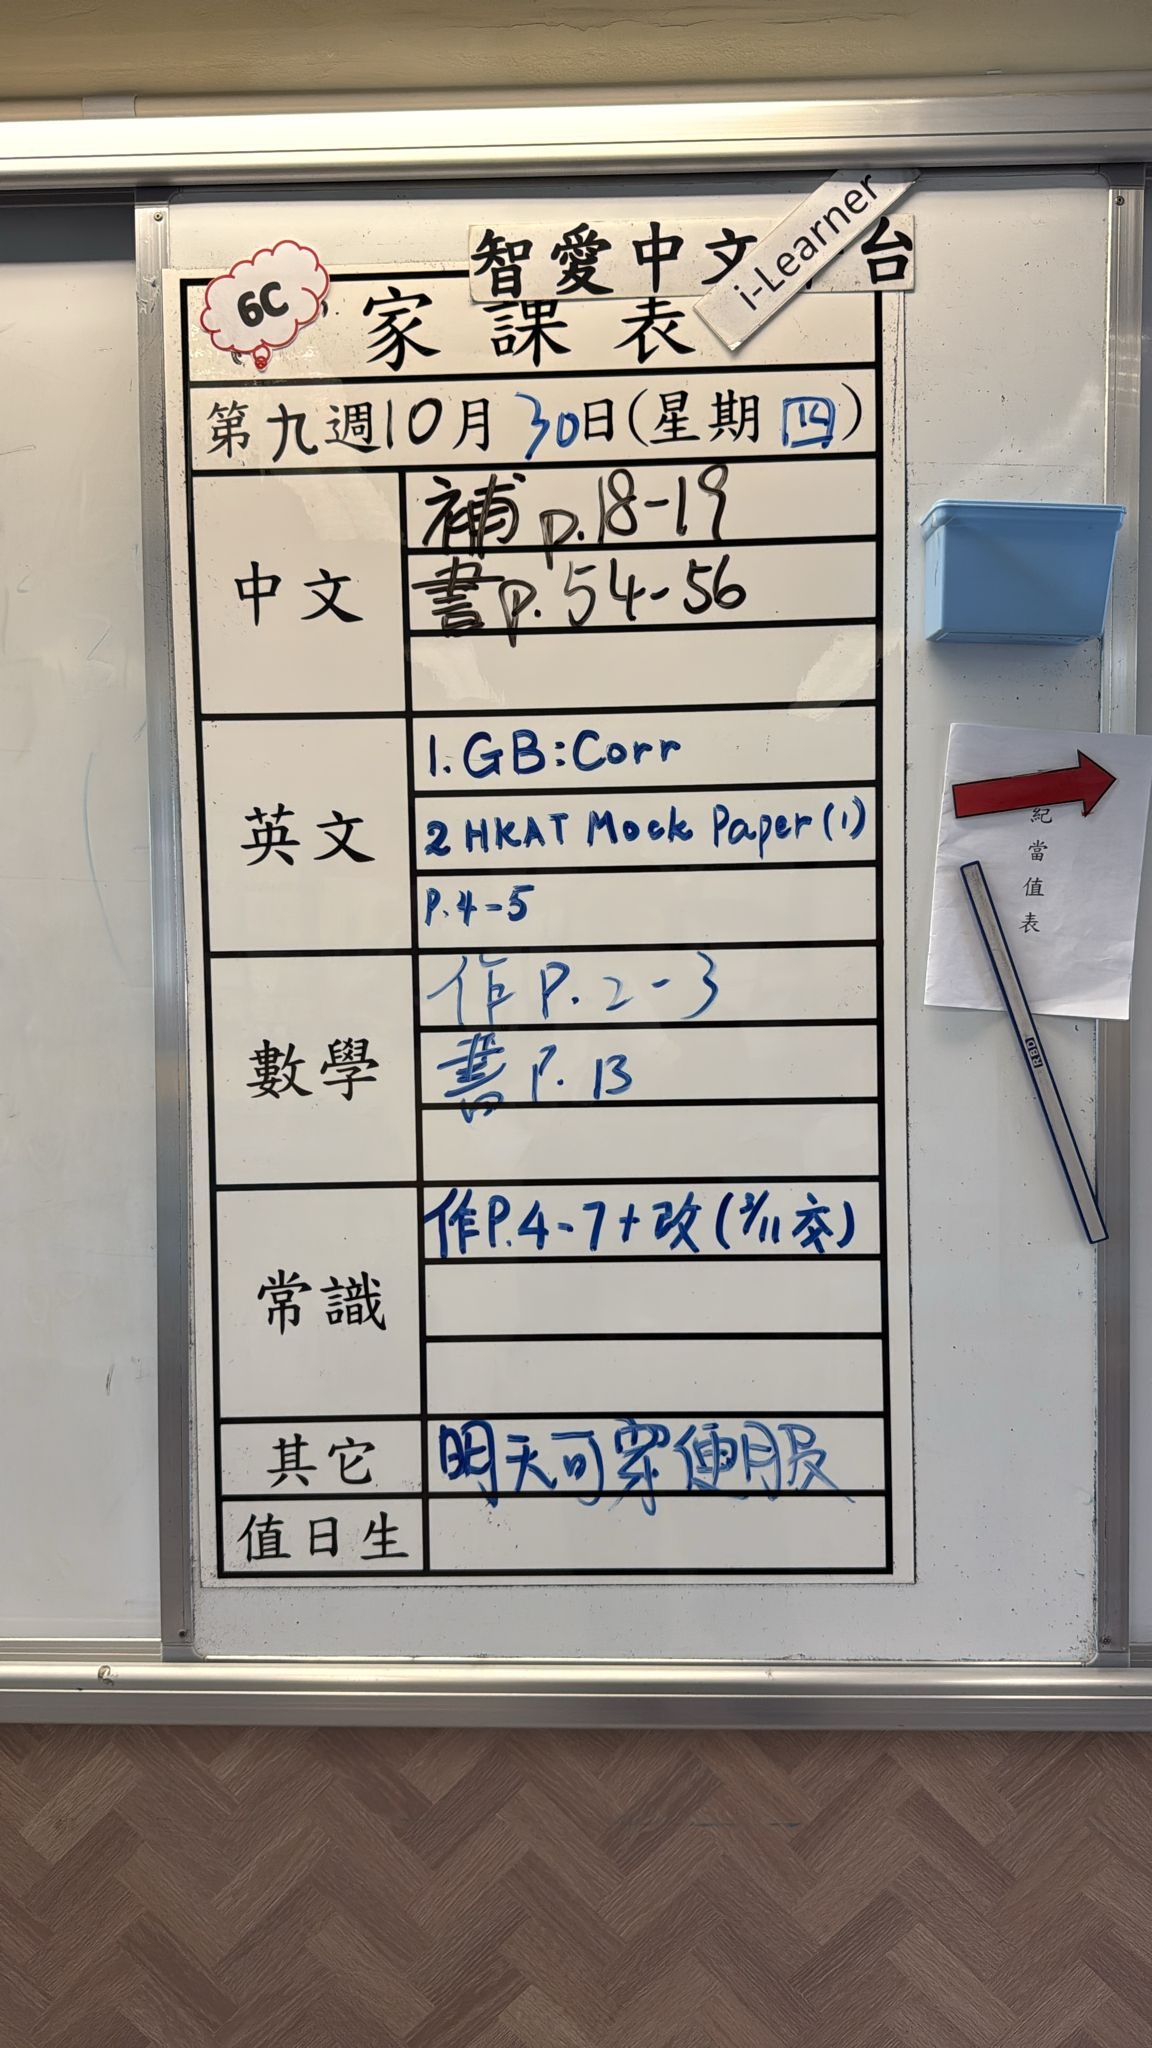 智愛中文 台
i-Learner
6C
家課表
第九週10月30日(星期四)
中文
補 p.18-19
書 p.54-56
英文
1.GB:Corr
2 HKAT Mock Paper (1)
P.4-5
數學
作 P.2-3
書 P.13
常識
作P.4-7+改(3/11交)
其它
明天可穿便服
值日生
紀當值表
RBD